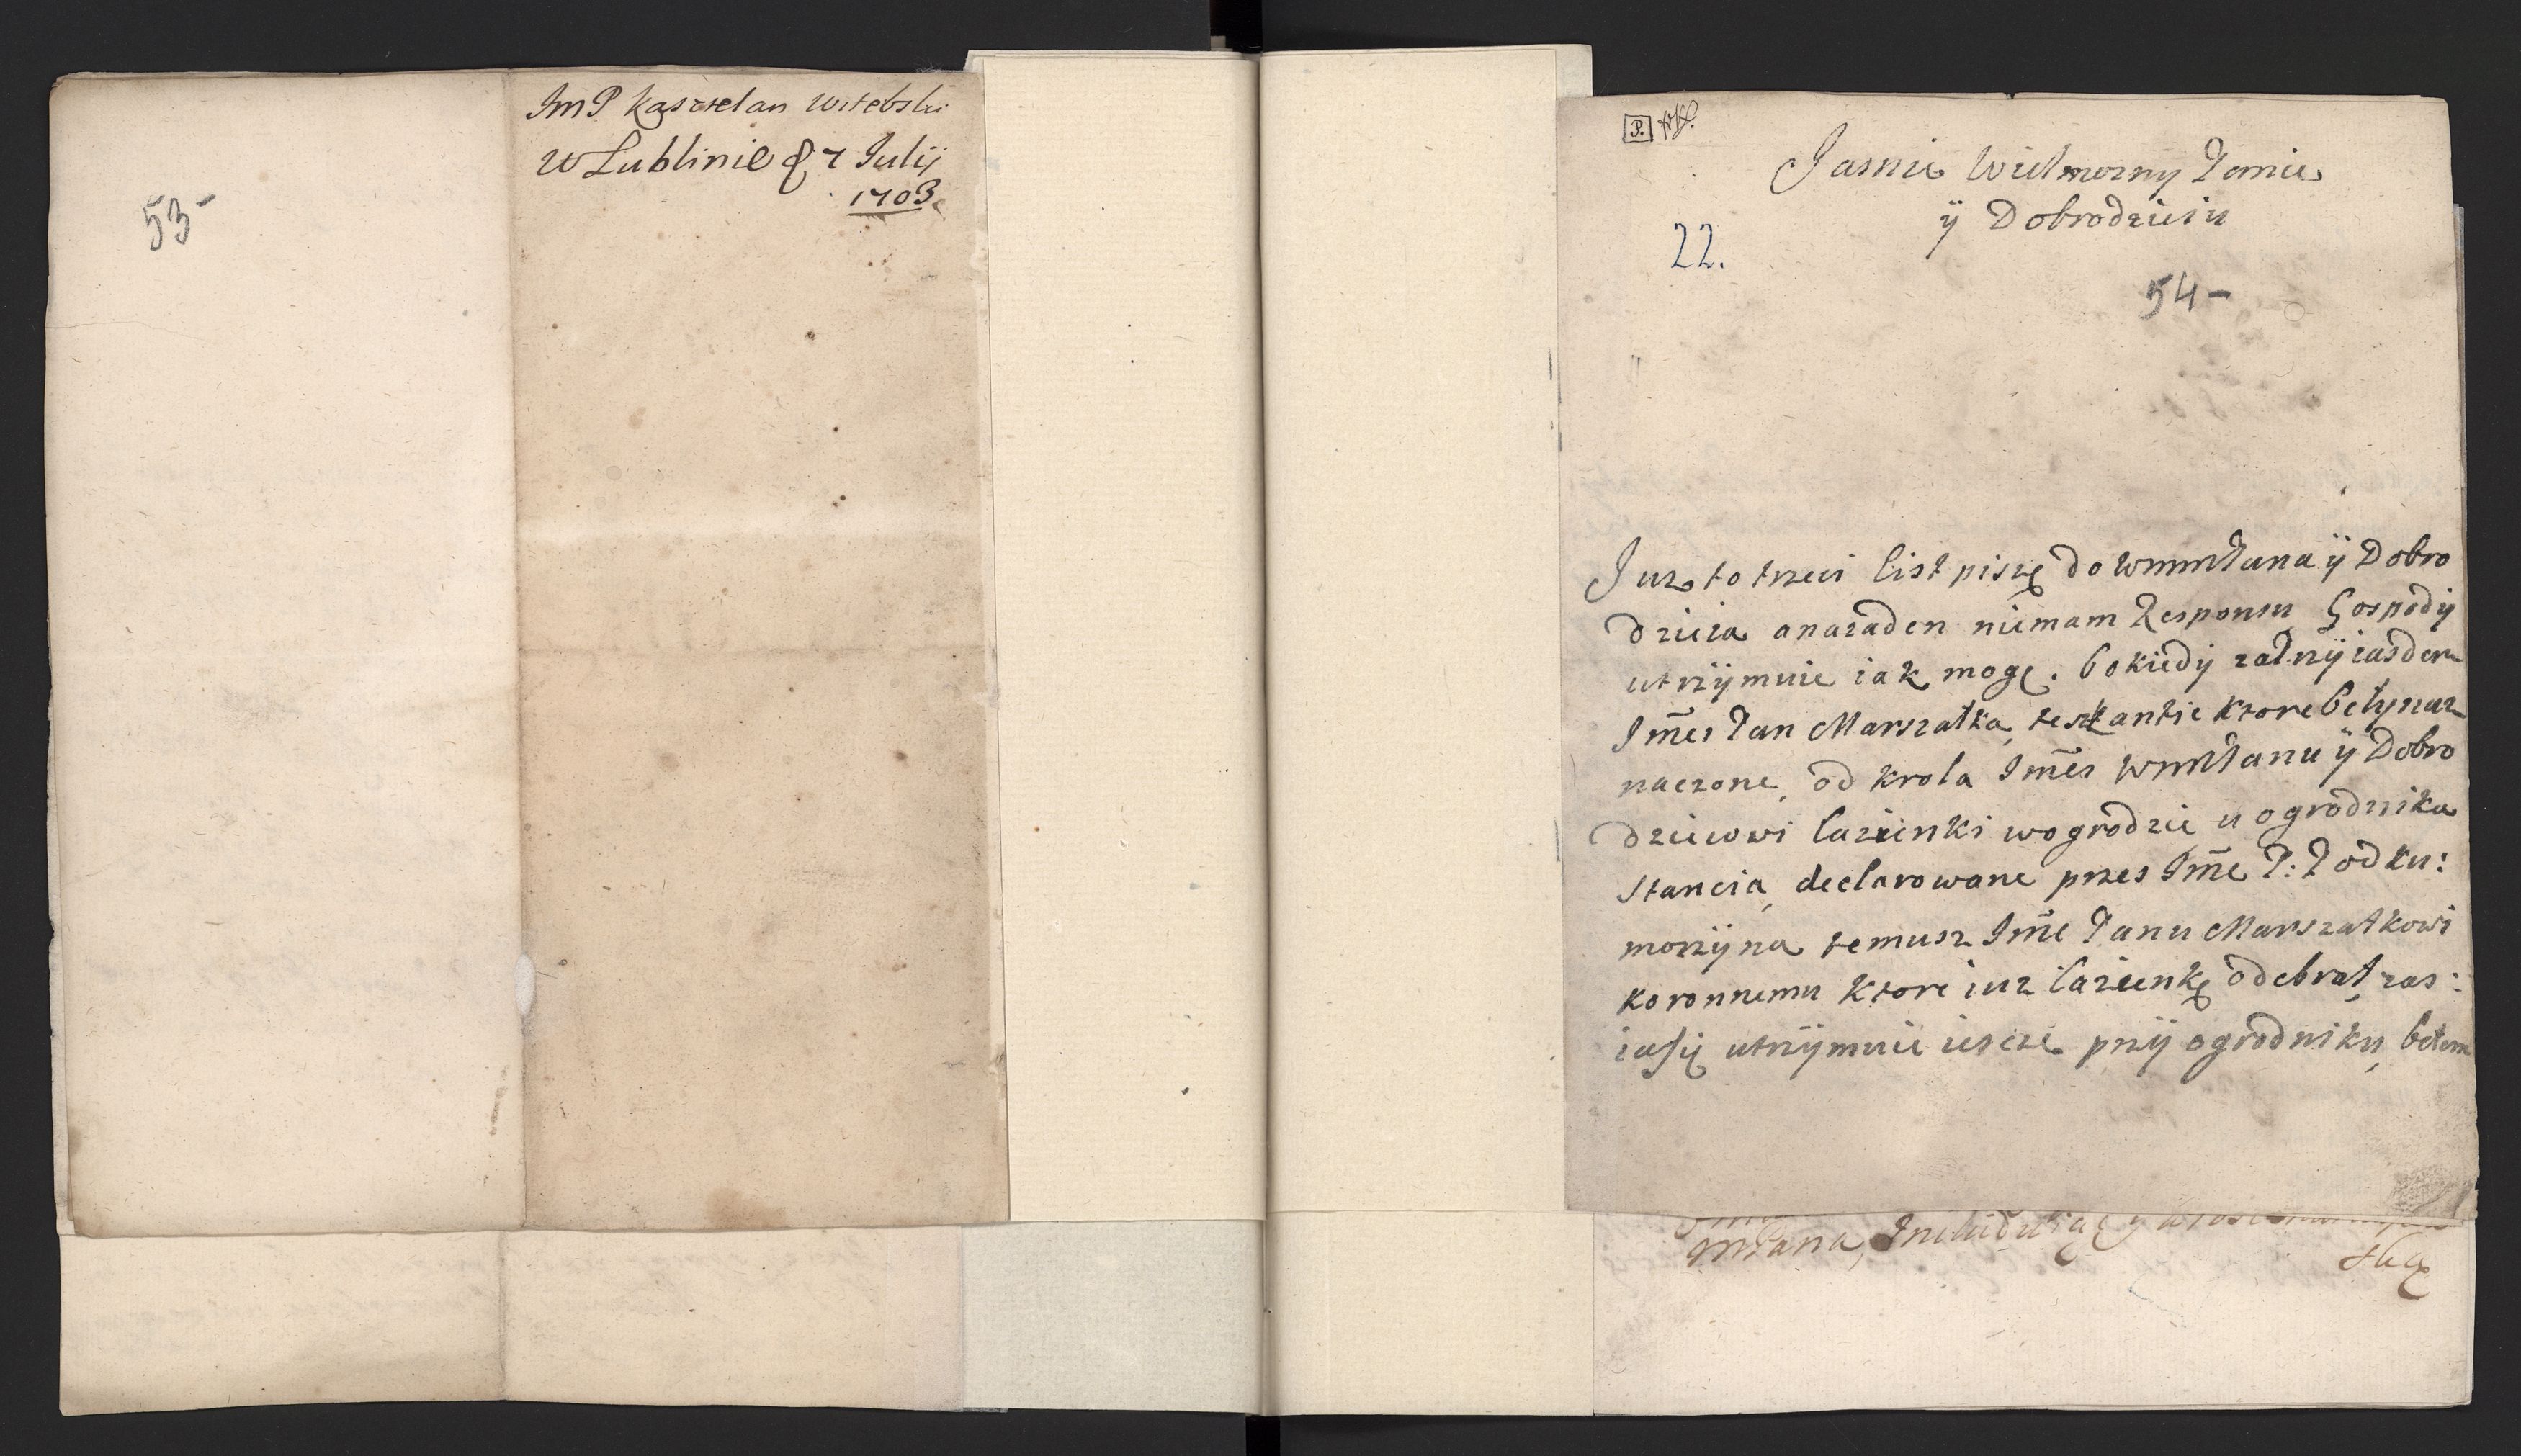 53-
JmP kasztelan witebski
w Lublinie 7 Julij
1703
P.
Jasnie Wielmozny Panie
ÿ Dobrodzieiu
22.
54-
Juz to trzeci list piszę do WmmPana ÿ Dobro
dzieia anazaden niemam Responsu Gospodÿ
utrzÿmuie iak mogę. bo kiedÿ
Jmci Pan Marszałka, też antie ktore belÿ naz
naczone, od krola Jmci WmmPanu ÿ Dobro
dzieiowi lazienki wogrodzie u ogrodnika
stancia, declarowane przes Jme P: Podku:
morzÿna temusz Jme Panu Marszałkowi
koronnemu ktore iuz lazienkę odebrał, zas:
iasię utrzÿmuie iescze przÿ ogrodniku, bełem
MPana,
sług